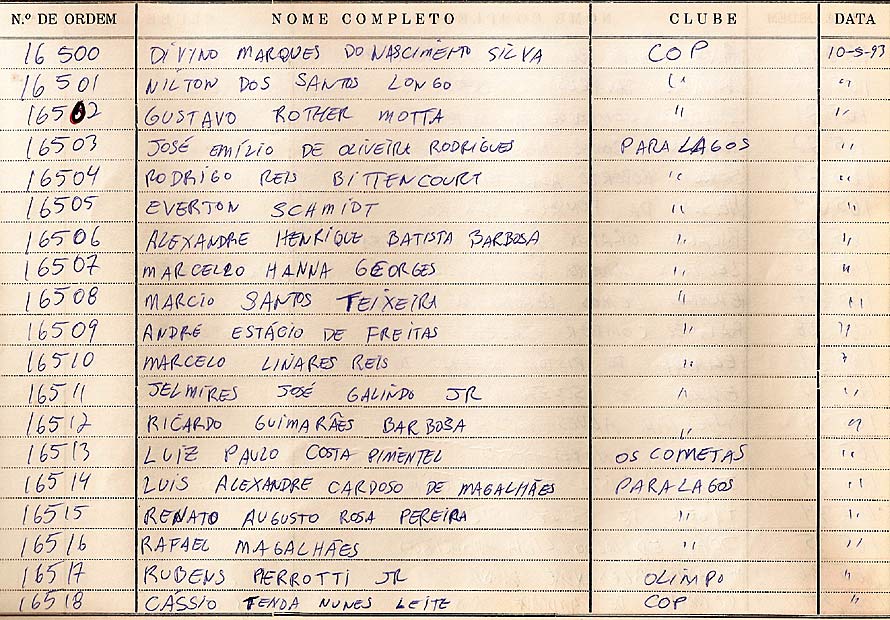 N.º DE ORDEM NOME COMPLETO CLUBE DATA
16500 DIVINO MARQUES DO NASCIMENTO SILVA COP 10-5-93
16501 NILTON DOS SANTOS LONGO " "
16502 GUSTAVO ROTHER MOTTA " "
16503 JOSÉ EMÍLIO DE OLIVEIRA RODRIGUES PARALAGOS "
16504 RODRIGO REIS BITTENCOURT " "
16505 EVERTON SCHMIDT " "
16506 ALEXANDRE HENRIQUE BATISTA BARBOSA " "
16507 MARCELLO HANNA GEORGES " "
16508 MARCIO SANTOS TEIXEIRA " "
16509 ANDRÉ ESTÁCIO DE FREITAS " "
16510 MARCELO LINARES REIS " "
16511 JELMIRES JOSÉ GALINDO JR " "
16512 RICARDO GUIMARÃES BARBOSA " "
16513 LUIZ PAULO COSTA PIMENTEL OS COMETAS "
16514 LUIS ALEXANDRE CARDOSO DE MAGALHÃES PARALAGOS "
16515 RENATO AUGUSTO ROSA PEREIRA " "
16516 RAFAEL MAGALHÃES " "
16517 RUBENS PERROTTI JR OLIMPO "
16518 CÁSSIO TENDA NUNES LEITE COP "